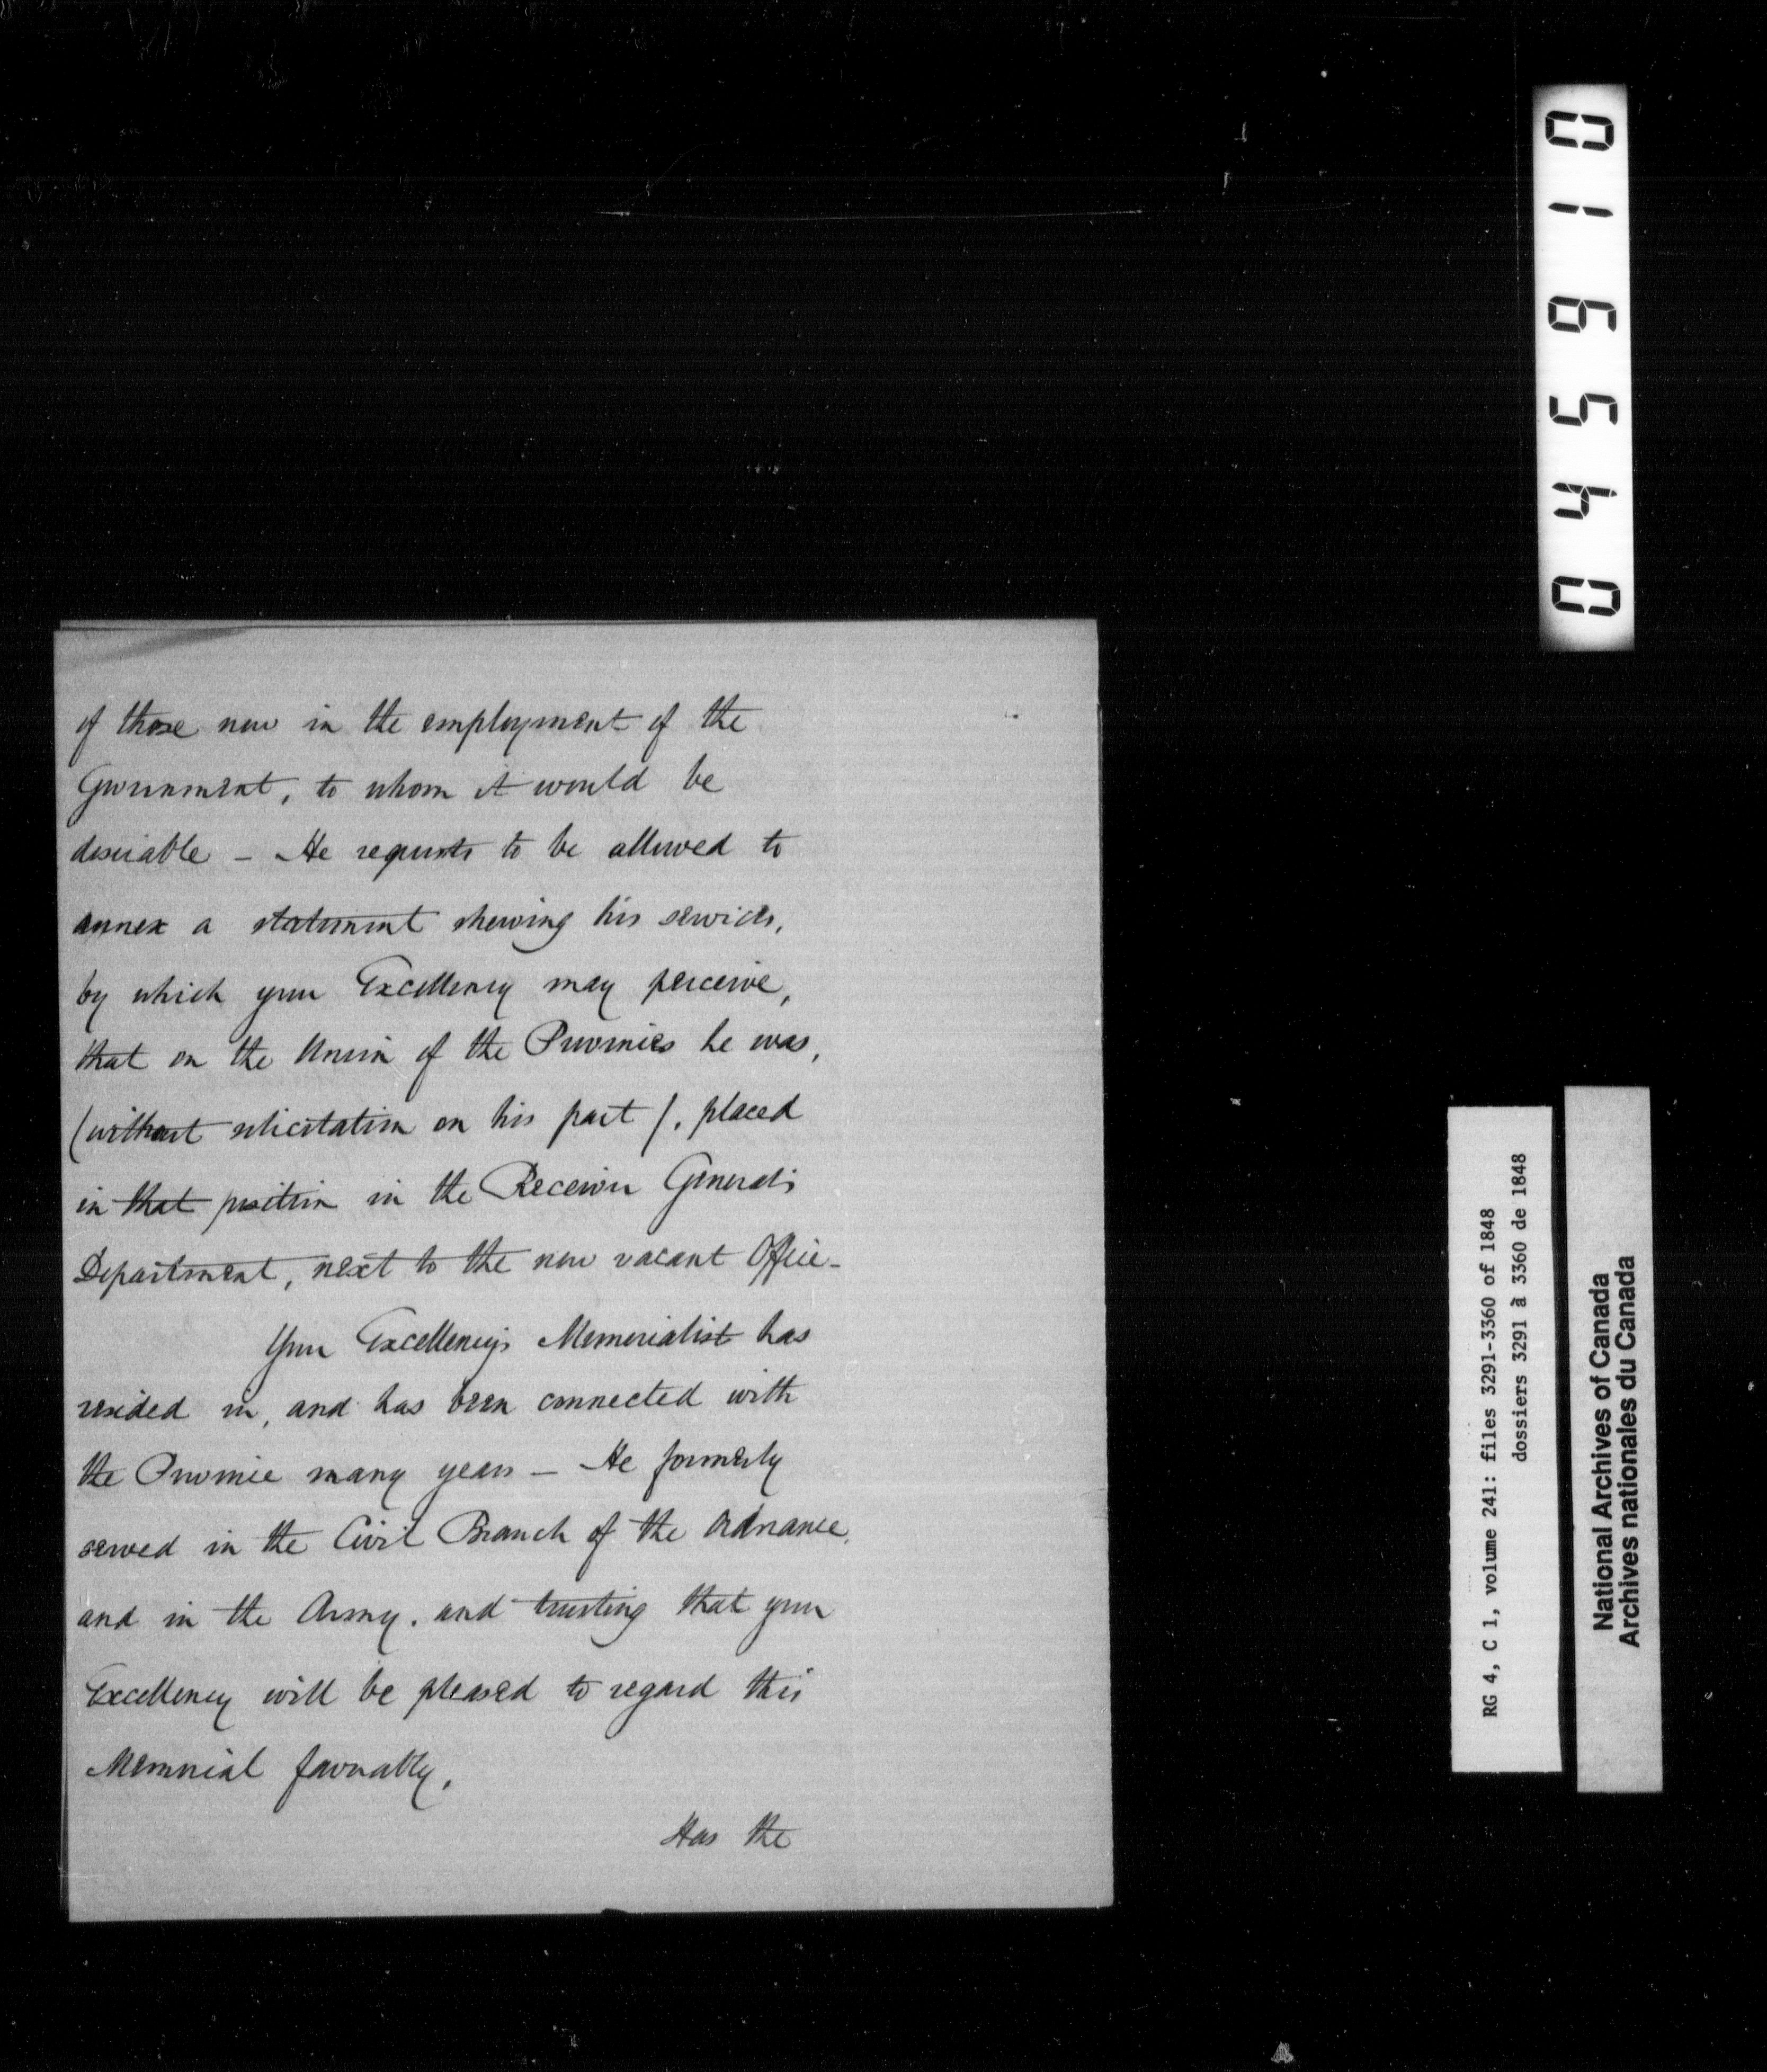 of those now in the employment of the
Government, to whom it would be
desirable - He requests to be allowed to
annex a statement shewing his services,
by which your Excellency may perceive,
that on the Union of the Provinces he was,
(without solicitation on his part), placed
in that position in the Receiver General's
Department, next to the now vacant Office-
Your Excellency's Memorialist has
resided in, and has been connected with
the Province many years - He formerly
served in the Civil Branch of the Ordnance,
and in the Army. and trusting that your
Excellency will be pleased to regard this
Memorial favorably,
Has the
045910
RG 4, C 1, volume 241: files 3291-3360 of 1848
dossiers 3291 à 3360 de 1848
National Archives of Canada
Archives nationales du Canada